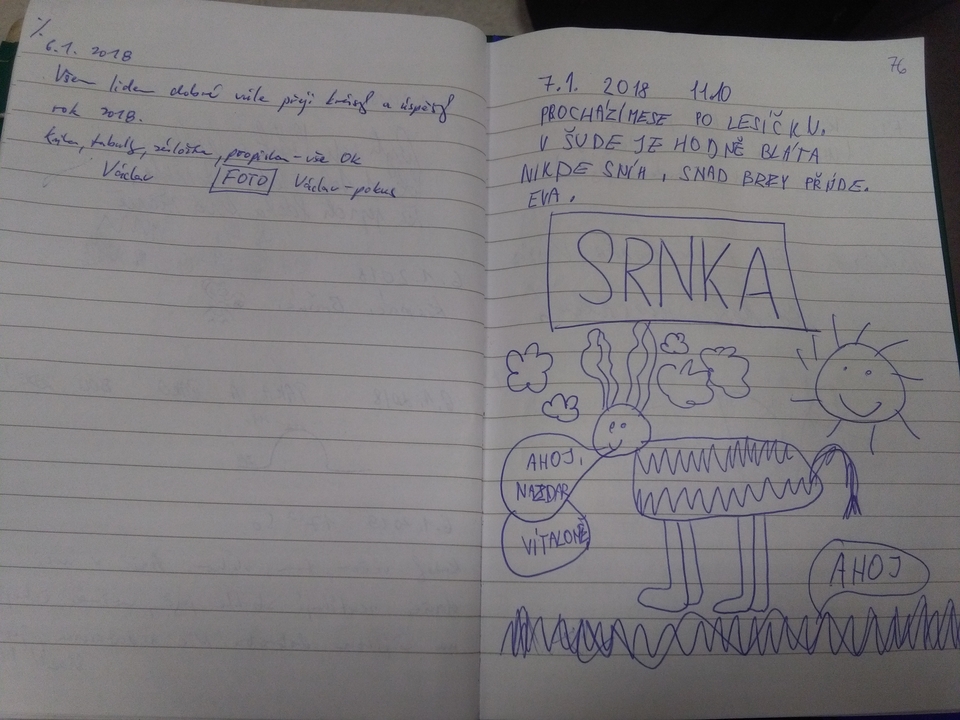 6.1. 2018
Všem lidem dobré vůle přeji krásný a úspěšný
rok 2018.
Kniha, tabulky, záložka, propiska - vše OK
Václav FOTO Václav - pokus
76
7.1. 2018 1110
PROCHÁZÍMESE PO LESÍČKU.
V ŠUDE JE HODNĚ BLÁTA
NIKDE SNÍH, SNAD BRZY PŘIJDE.
EVA.
SRNKA
AHOJ,
NAZDAR
VÍTALONĚ
AHOJ